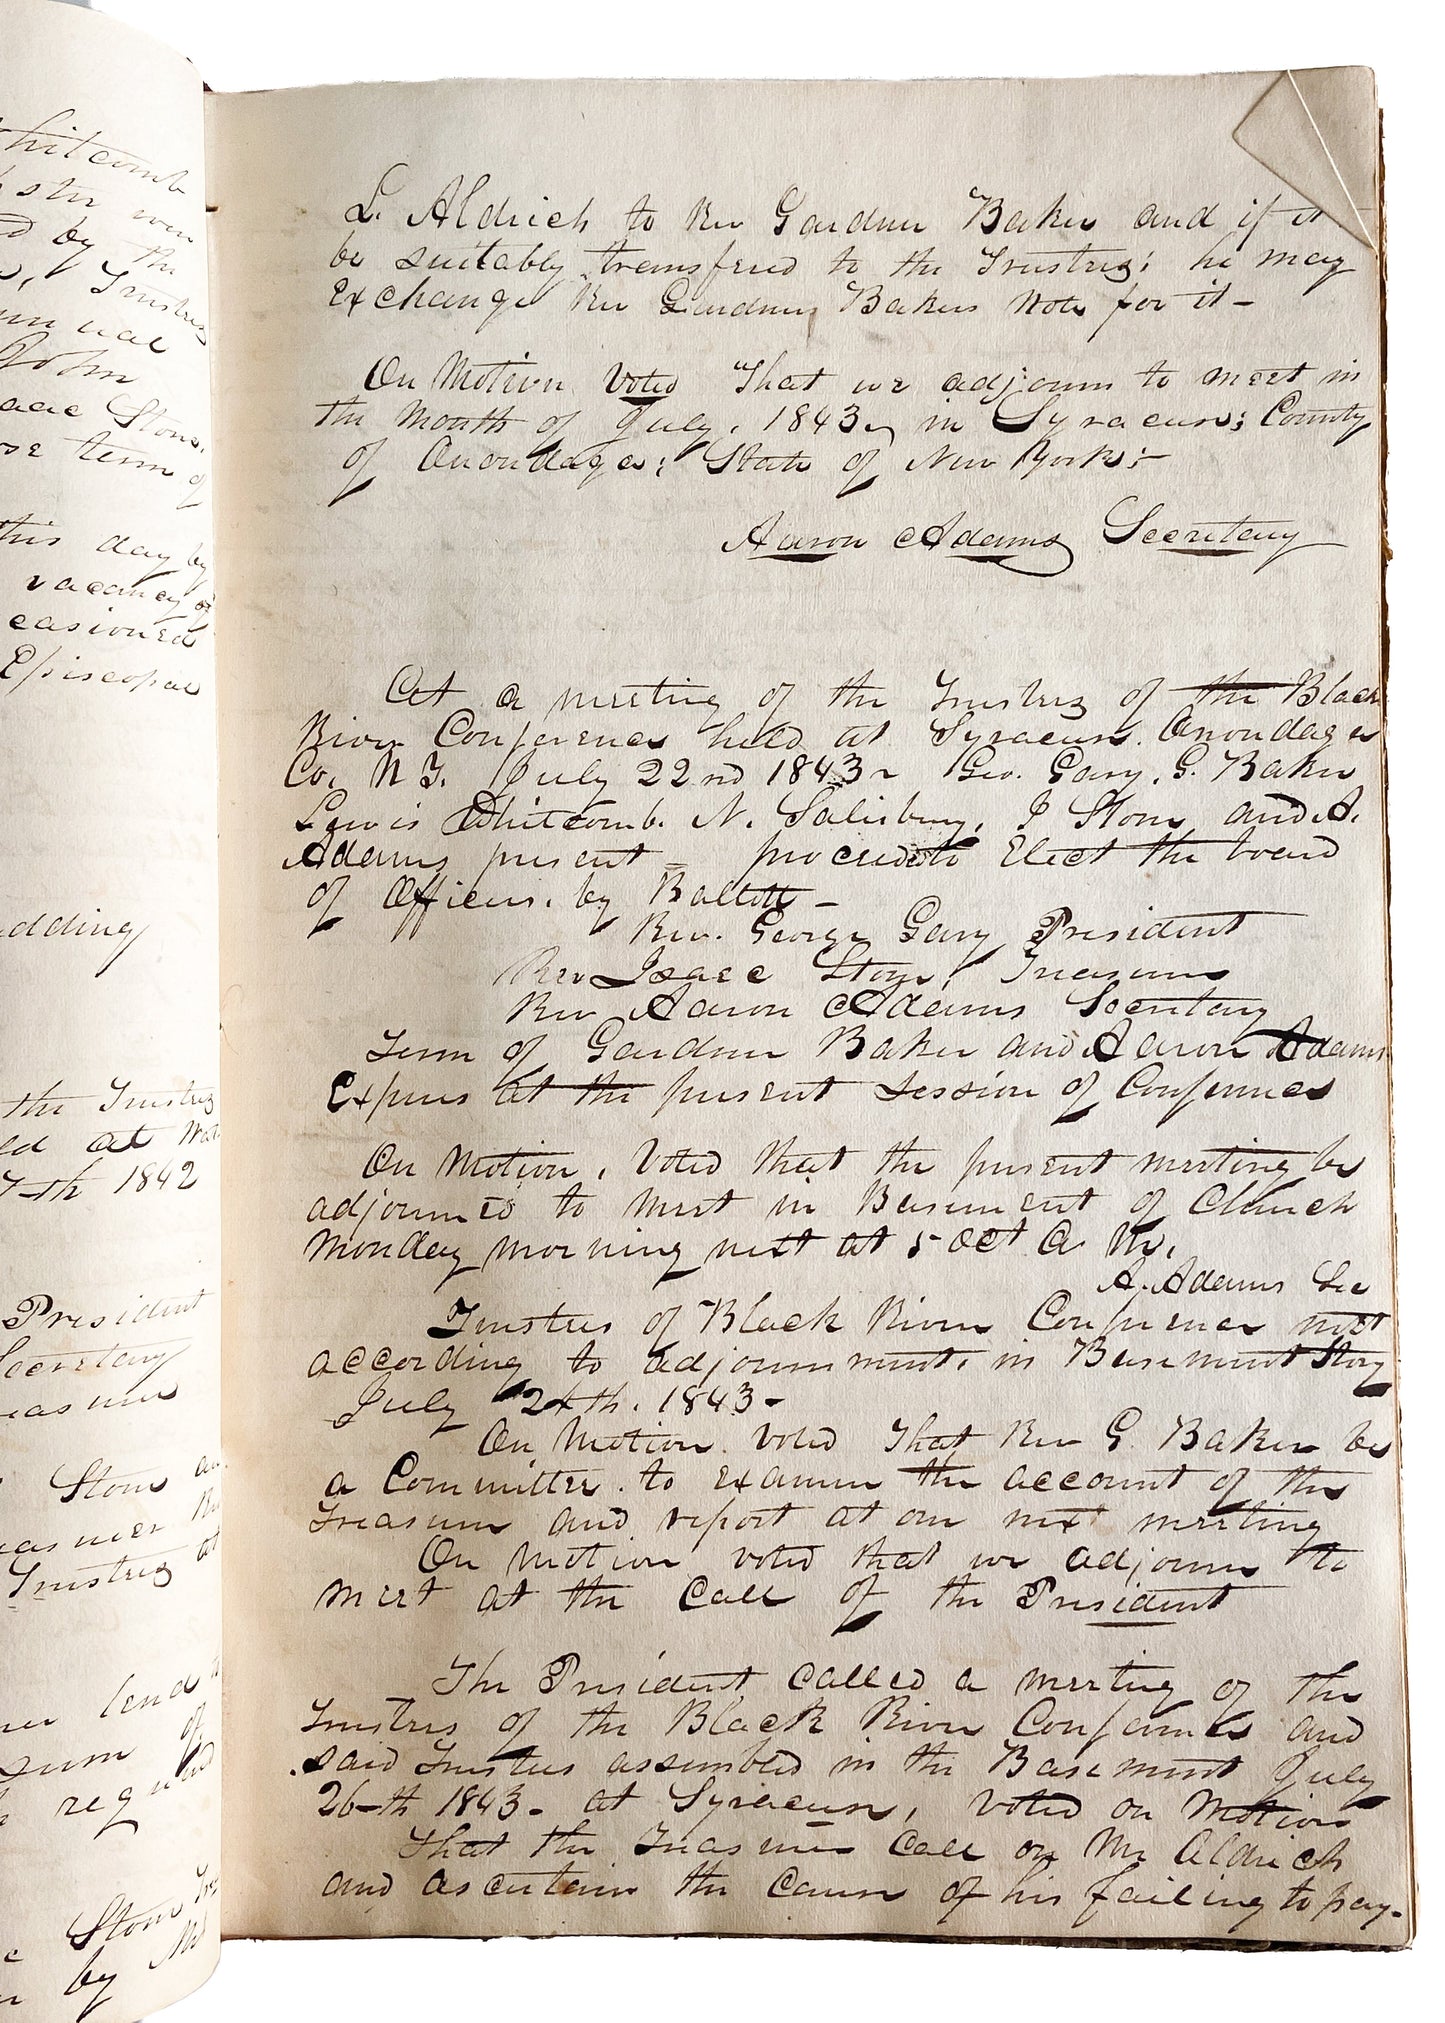 hitcomb
ster were
ed by the
Trustees
annual
John
aac Stone.
ose term of
this day by
vacancy of
casioned
Episcopal
dding
the Trustees
ed at Wat
7th 1842
President
Secretary
easurer
Stone an
easurer
Trustees at
lend
sum of
required
Stone Tre
by Mr
L. Aldrich to Rev Gardner Baker and if it
be suitably transfered to the Trustees; he may
exchange Rev Gardners Bakers Note for it -
On Motion Voted That we adjourn to meet in
the Month of July, 1843, in Syracuse; County
of Onondaga; State of New York;-
Aaron Adams Secretary
At a meeting of the Trustees of the Black
River Conference held at Syracuse. Onondaga
Co. N Y. July 22nd 1843 - Geo. Gary, G. Baker
Lewis Whitcomb. N. Salisbury, I Stone and A.
Adams present - proceeded to Elect the board
of Officers. by Ballott -
Rev. George Gary President
Rev Isaac Stone, Treasurer
Rev Aaron Adams Secretary
Term of Gardner Baker and Aaron Adams
Expires at the present session of Conference
On Motion, Voted that the present meeting be
adjourned to meet in Basement of Church
Monday morning next at 5 oct A M.
A. Adams Sec
Trustees of Black River Conference met
according to adjournment, in Basement Story
July 24th. 1843-
On Motion. Voted That Rev G. Baker be
a Committee. to examine the account of the
Treasurer and report at our next meeting
On Motion voted that we adjourn to
meet at the Call of the President
The President called a meeting of the
Trustees of the Black River Conference and
said Trustees assembled in the Basement July
26-th 1843- at Syracuse, voted on Motion
That the Treasurer Call on Mr Aldrich
and ascertain the cause of his failing to pay-